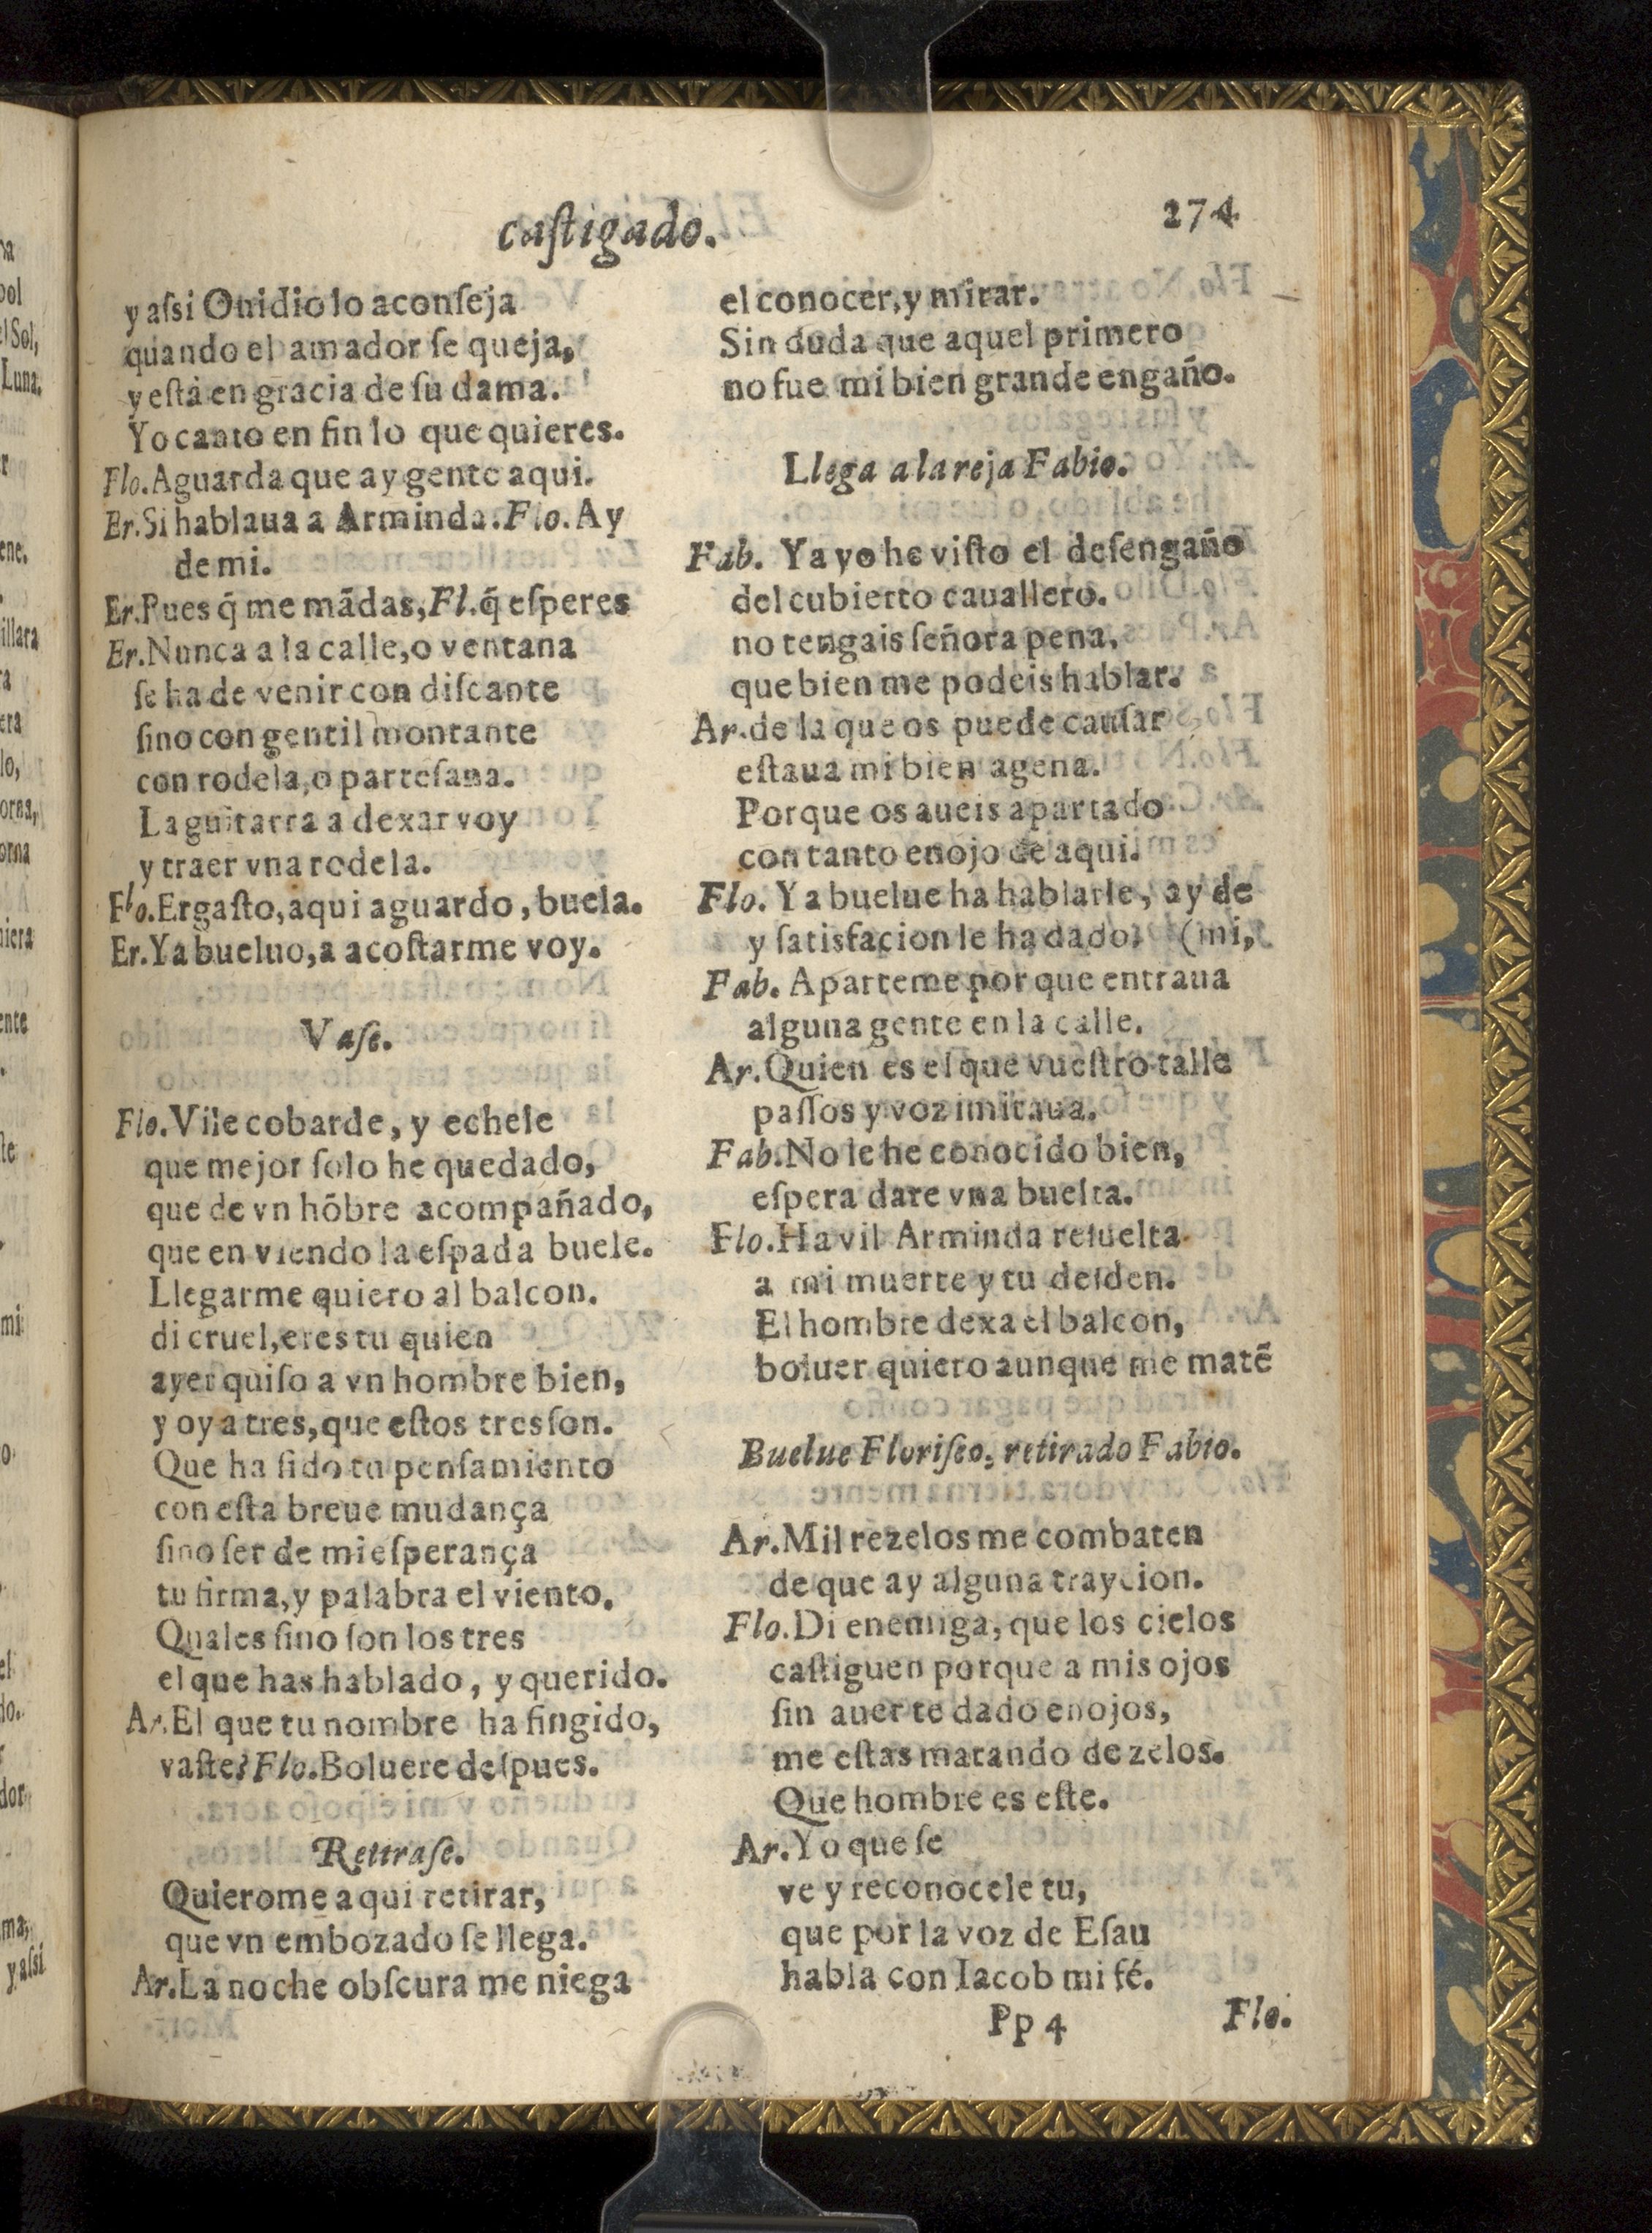 castigado.
274
y assi Ouidio lo aconseja
quando el amador se queja,
y està en gracia de su dama.
Yo canto en fin lo que quieres.
Flo. Aguarda que ay gente aqui.
Er. Si hablaua a Arminda. Flo. Ay
de mi.
Er. Pues q̃ me mãdas, Fl. q̃ esperes
Er. Nunca a la calle, o ventana
se ha de venir con discante
sino con gentil montante
con rodela, o partesana.
La guitarra a dexar voy
y traer vna rodela.
Flo. Ergasto, aqui aguardo, buela.
Er. Ya bueluo, a acostarme voy.
Vase.
Flo. Vile cobarde, y echele
que mejor solo he quedado,
que de vn hõbre acompañado,
que en viendo la espada buele.
Llegarme quiero al balcon.
di cruel, eres tu quien
ayer quiso a vn hombre bien,
y oy a tres, que estos tres son.
Que ha sido tu pensamiento
con esta breue mudança
sino ser de mi esperança
tu firma, y palabra el viento.
Quales sino son los tres
el que has hablado, y querido.
Ar. El que tu nombre ha fingido,
vaste? Flo. Boluere despues.
Retirase.
Quierome aqui retirar,
que vn embozado se llega.
Ar. La noche obscura me niega
el conocer, y mirar.
Sin duda que aquel primero
no fue mi bien grande engaño.
Llega a la reja Fabio.
Fab. Ya yo he visto el desengaño
del cubierto cauallero.
no tengais señora pena,
que bien me podeis hablar.
Ar. de la que os puede causar
estaua mi bien agena.
Porque os aueis apartado
con tanto enojo de aqui.
Flo. Ya buelue ha hablarle, ay de
y satisfacion le ha dado. (mi,
Fab. Aparteme por que entraua
alguna gente en la calle.
Ar. Quien es el que vuestro talle
passos y voz imitaua.
Fab. No le he conocido bien,
espera dare vna buelta.
Flo. Ha vil Arminda resuelta
a mi muerte y tu desden.
El hombre dexa el balcon,
boluer quiero aunque me matẽ
Buelue Floriseo, retirado Fabio.
Ar. Mil rezelos me combaten
de que ay alguna traycion.
Flo. Di enemiga, que los cielos
castiguen porque a mis ojos
sin auerte dado enojos,
me estas matando de zelos.
Que hombre es este.
Ar. Yo que se
ve y reconocele tu,
que por la voz de Esau
habla con Iacob mi fé.
Pp 4
Flo.